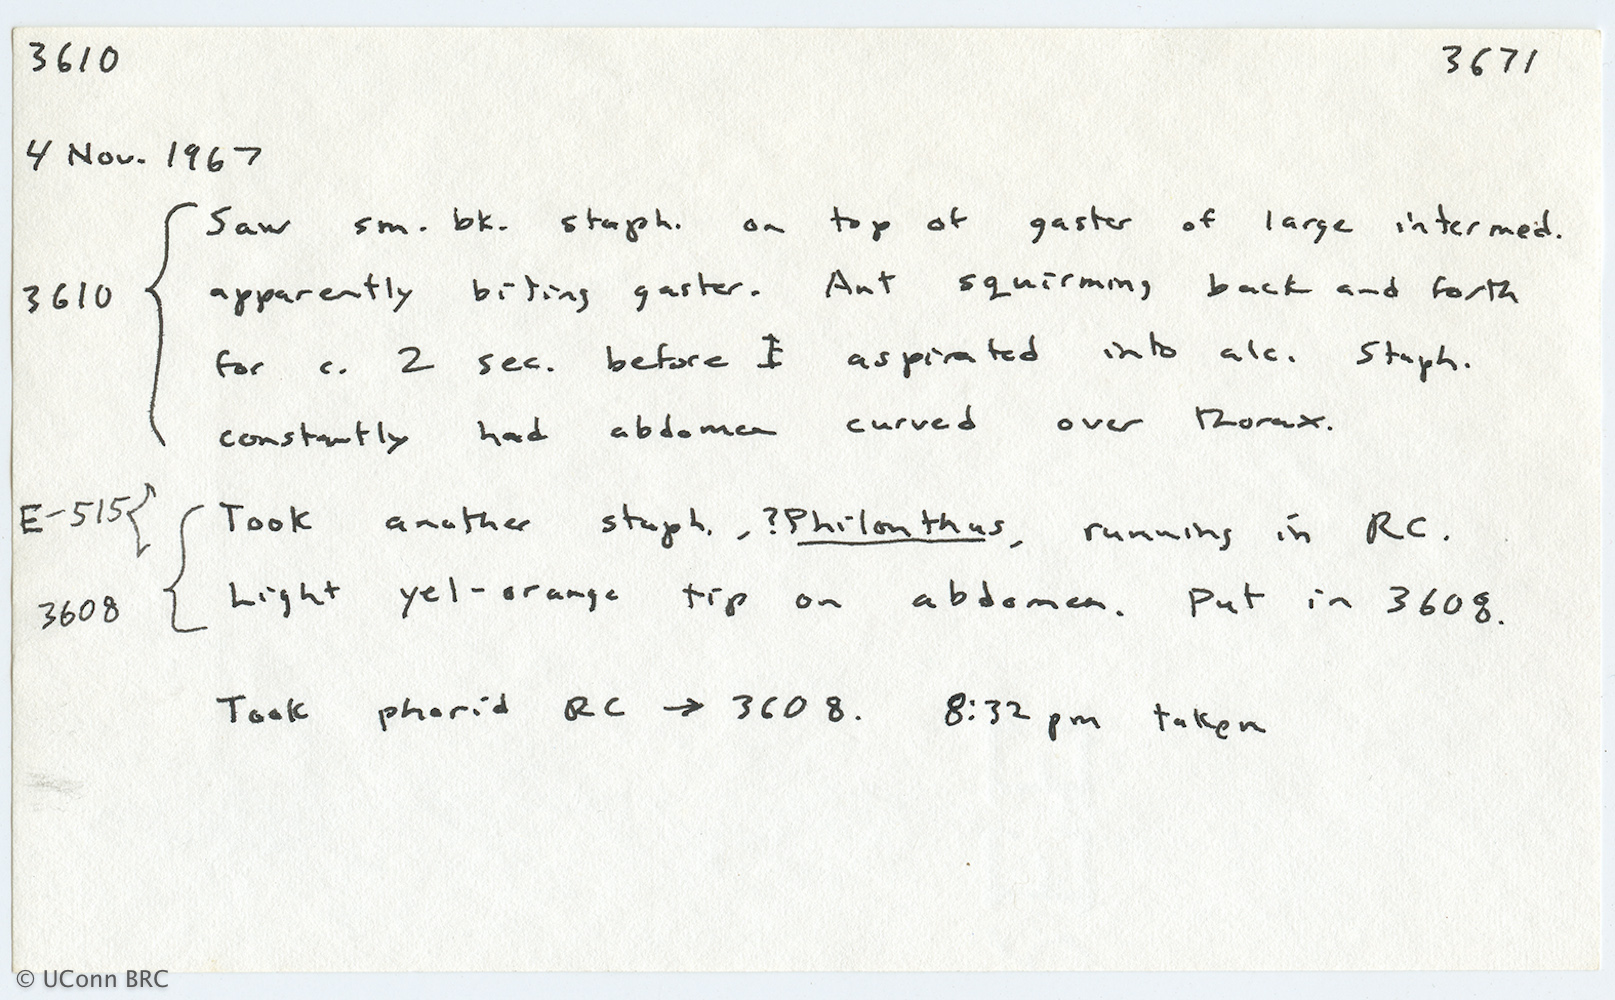 3610 3671
4 Nov. 1967
Saw sm. bk. staph. on top of gaster of large intermed.
3610 apparently biting gaster. Ant squirming back and forth
for c. 2 sec. before I aspirated into alc. Staph.
constantly had abdomen curved over thorax.
E-515 Took another staph., ?Philonthus, running in RC.
3608 Light yel-orange tip on abdomen. Put in 3608.
Took phorid RC → 3608. 8:32 pm taken
© UConn BRC